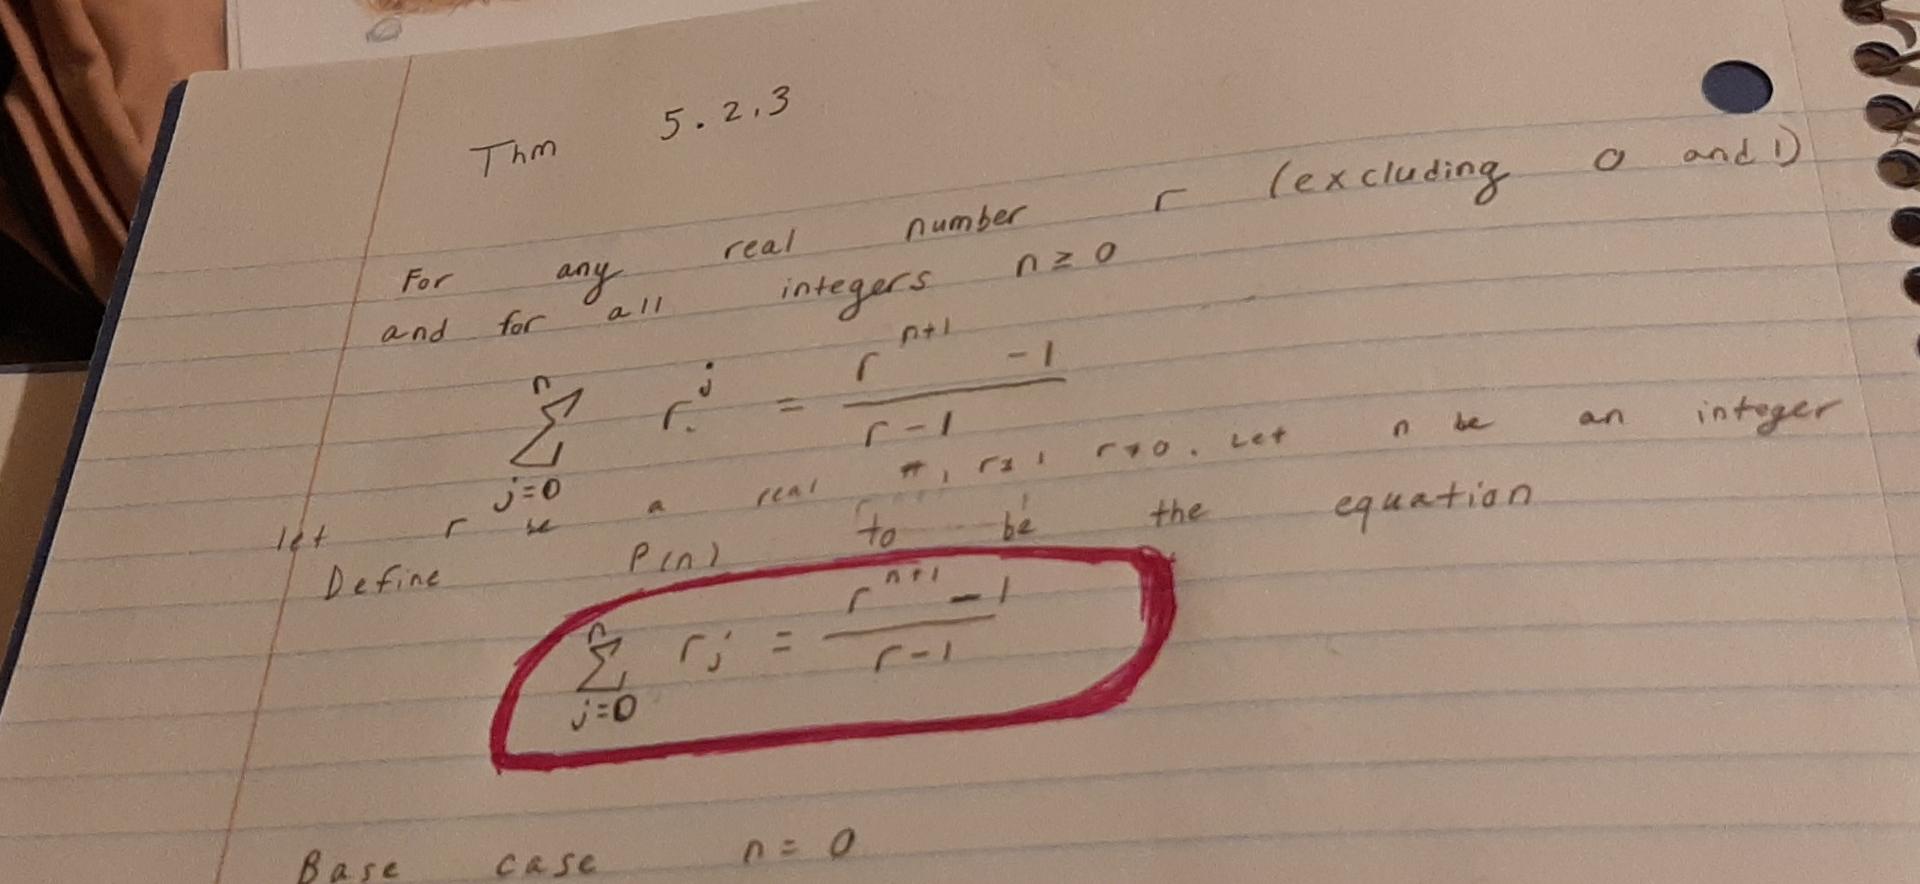 Thm 5.2.3
For any real number r (excluding 0 and 1)
and for all integers n ≥ 0
n
∑ r^j = (r^(n+1) - 1) / (r - 1)
j=0
let r be a real #, r≠1 r≠0. Let n be an integer
Define P(n) to be the equation
n
∑ rj = (r^(n+1) - 1) / (r - 1)
j=0
Base case n = 0